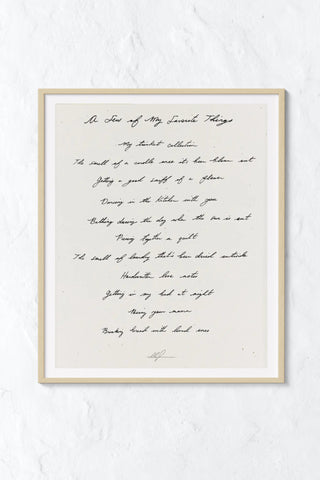 A Few of My Favorite Things
My trinket collection
The smell of a candle once it's been blown out
Getting a good sniff of a flower
Dancing in the kitchen with you
Bathing during the day when the sun is out
Piecing together a quilt
The smell of laundry that's been dried outside
Handwritten love notes
Getting in my bed at night
Hearing your
Breaking bread with loved ones